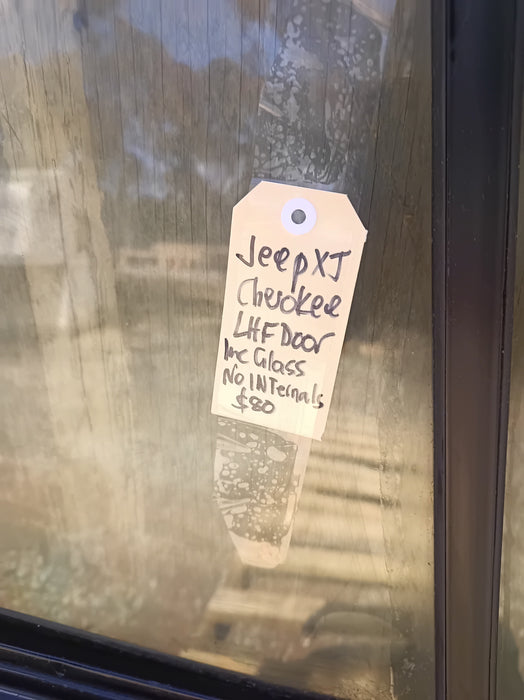 Jeep XJ
Cherokee
LHF Door
Inc Glass
No INTernals
$80